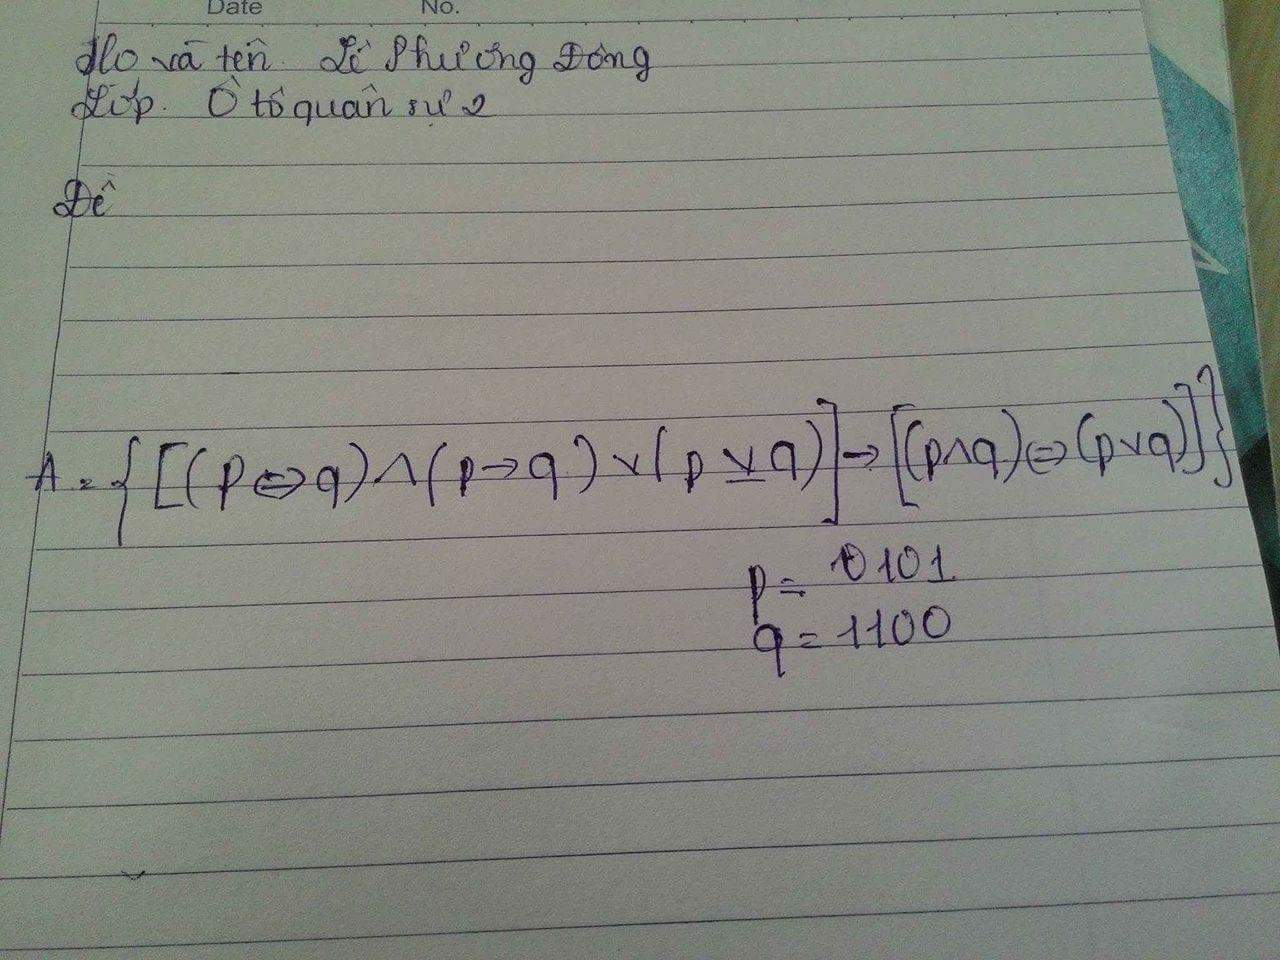 Date No.
Họ và tên. Lê Phương Đông
Lớp. Ô tô quân sự 2
Đề
A = { [(p ⇔ q) ∧ (p → q) ∨ (p ⊻ q)] → [(p ∧ q) ⇔ (p ∨ q)] }
p = 0101
q = 1100